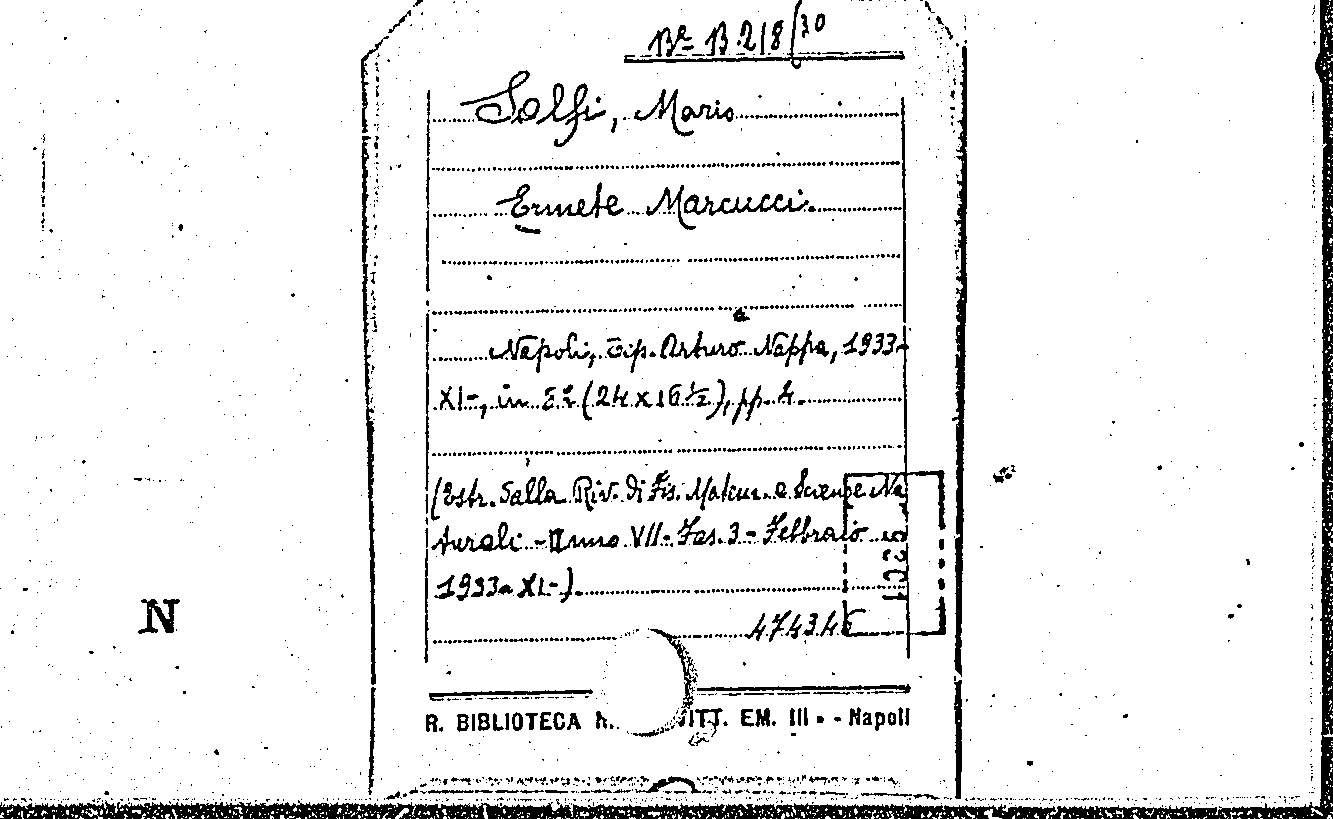 Bª B 218/30
Salfi, Mario
Ermete Marcucci.
Napoli, Tip. Arturo Nappa, 1933-
XI-, in 8º (24 x 16 ½), pp. 4.
(Estr. dalla Riv. di Fis. Matem. e Scienze Na
turali - Anno VII - Fas. 3 - Febbraio
1933a XI-).
474345
R. BIBLIOTECA N. VITT. EM. III - - Napoli
N